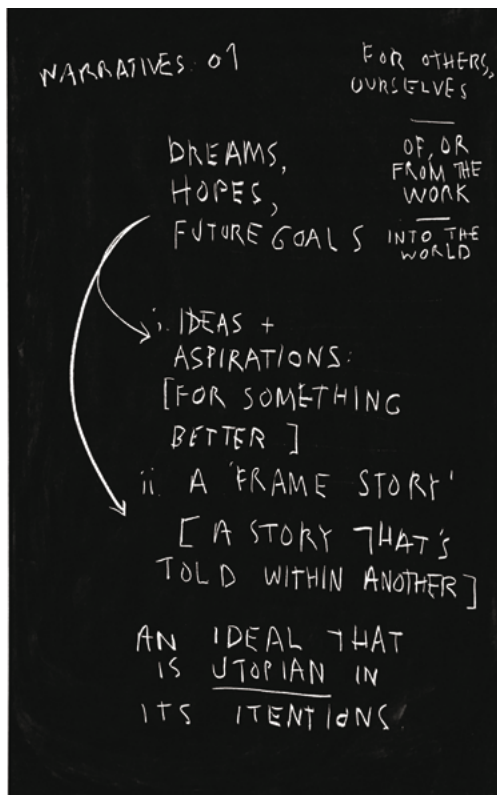 NARRATIVES: 01
FOR OTHERS,
OURSELVES
OF, OR
FROM THE
WORK
INTO THE
WORLD
DREAMS,
HOPES,
FUTURE GOALS
i. IDEAS +
ASPIRATIONS:
[FOR SOMETHING
BETTER]
ii. A 'FRAME STORY'
[A STORY THAT'S
TOLD WITHIN ANOTHER]
AN IDEAL THAT
IS UTOPIAN IN
ITS ITENTIONS.